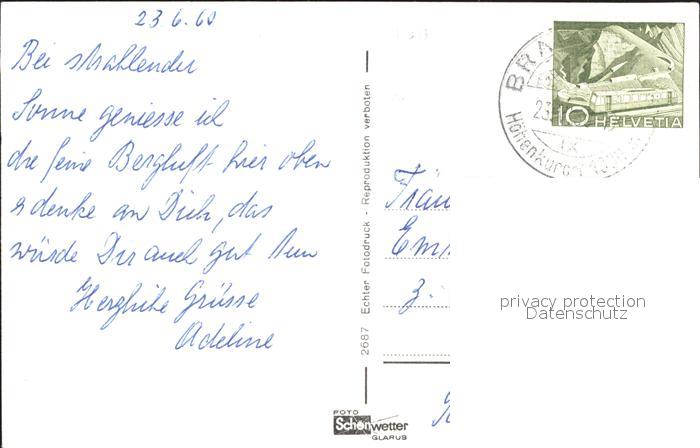 23.6.60
Bei strahlender
Sonne geniesse ich
die feine Bergluft hier oben
& denke an Dich, das
würde Dir auch gut tun
Herzliche Grüsse
Adeline
2687 Echter Fotodruck - Reproduktion verboten
FOTO
Schönwetter
GLARUS
BRA
23.
Höhenkurort
10 HELVETIA
Fräu
Em
z.
privacy protection
Datenschutz